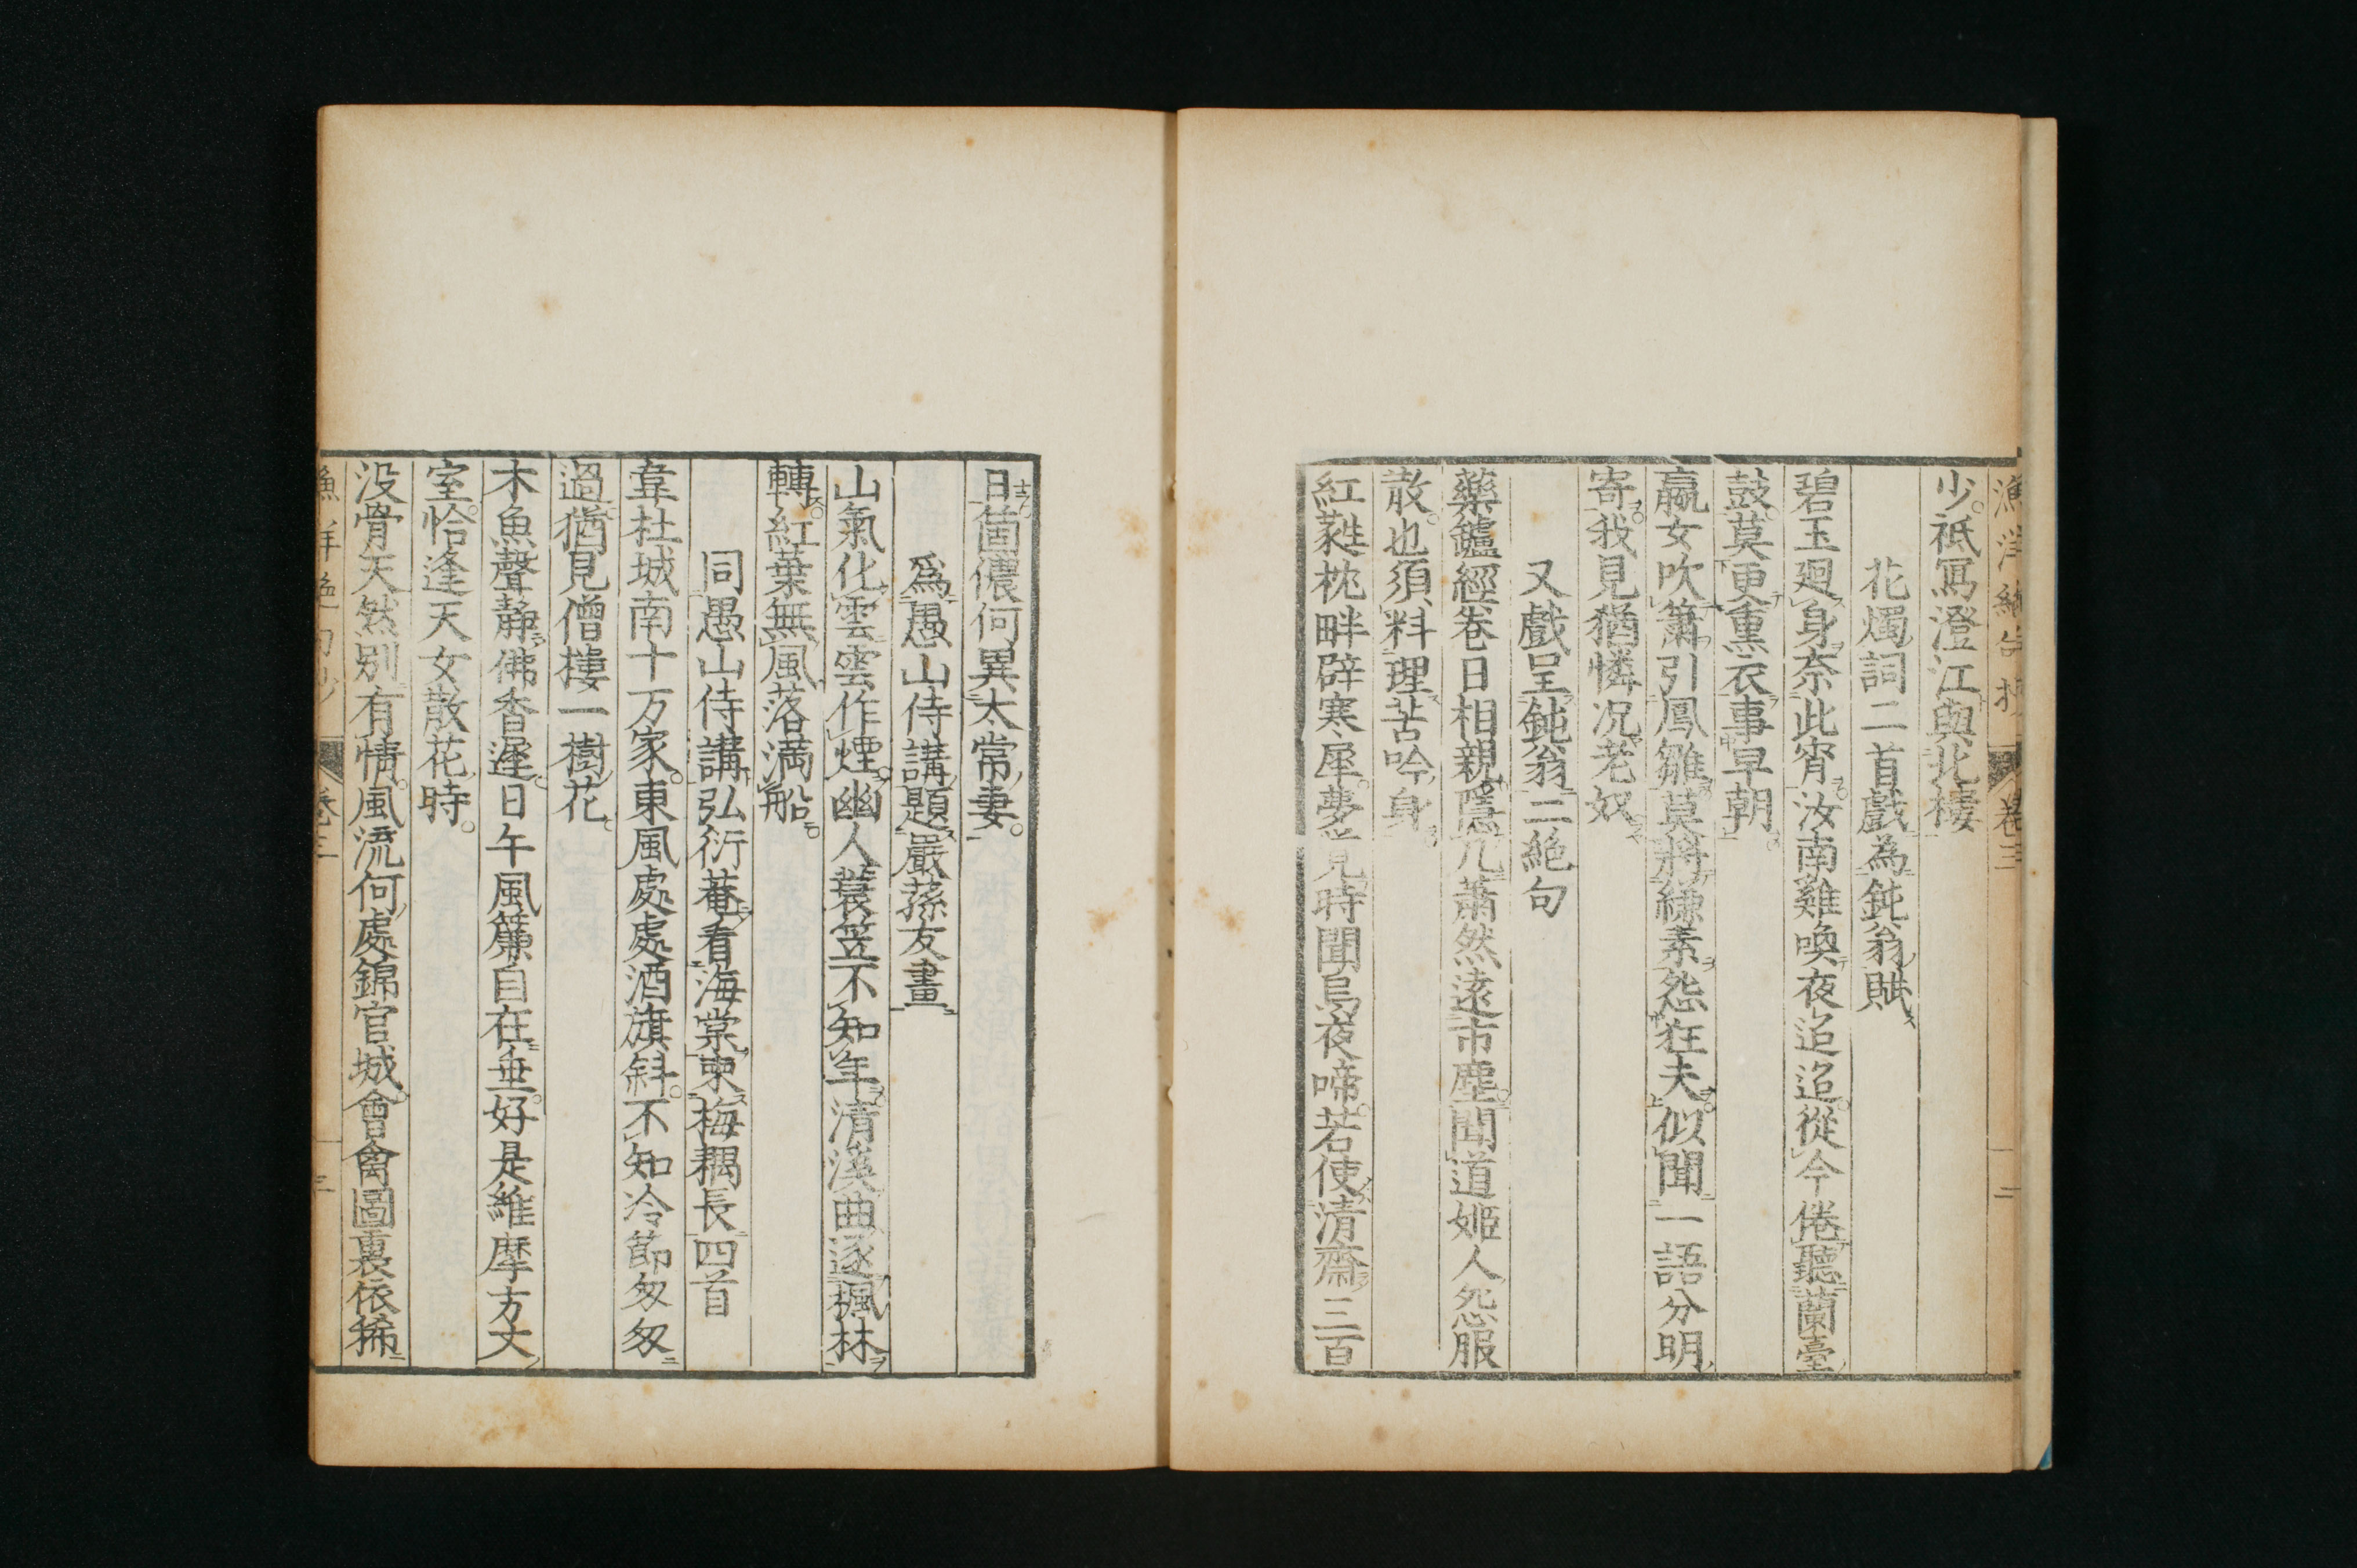 漁洋絶句抄 卷三 二
少。祗寫澄江與北樓
花燭詞二首戲為鈍翁賦
碧玉廻身奈此宵。汝南雞喚夜迢迢。從今倦聽蘭臺
鼓。莫更熏衣事早朝。
嬴女吹簫引鳳雛。莫將縑素怨狂夫。似聞一語分明
寄。我見猶憐况老奴。
又戲呈鈍翁二絶句
藥鑪經卷日相親。隱几蕭然遠市塵。聞道姬人怨服
散。也須料理苦吟身。
紅蕤枕畔辟寒犀。夢見時聞烏夜啼。若使清齋三百
日。箇儂何異太常妻。
爲愚山侍講題嚴蓀友畫
山氣化雲雲作煙。幽人蓑笠不知年。清溪曲逐楓林
轉。紅葉無風落満船。
同愚山侍講弘衍菴看海棠柬梅耦長四首
韋杜城南十万家。東風處處酒旗斜。不知冷節匆匆
過。猶見僧樓一樹花。
木魚聲静佛香遲。日午風簾自在垂。好是維摩方丈
室。恰逢天女散花時。
没骨天然別有情。風流何處錦官城。會禽圖裏依稀
漁洋絶句抄 卷三 二